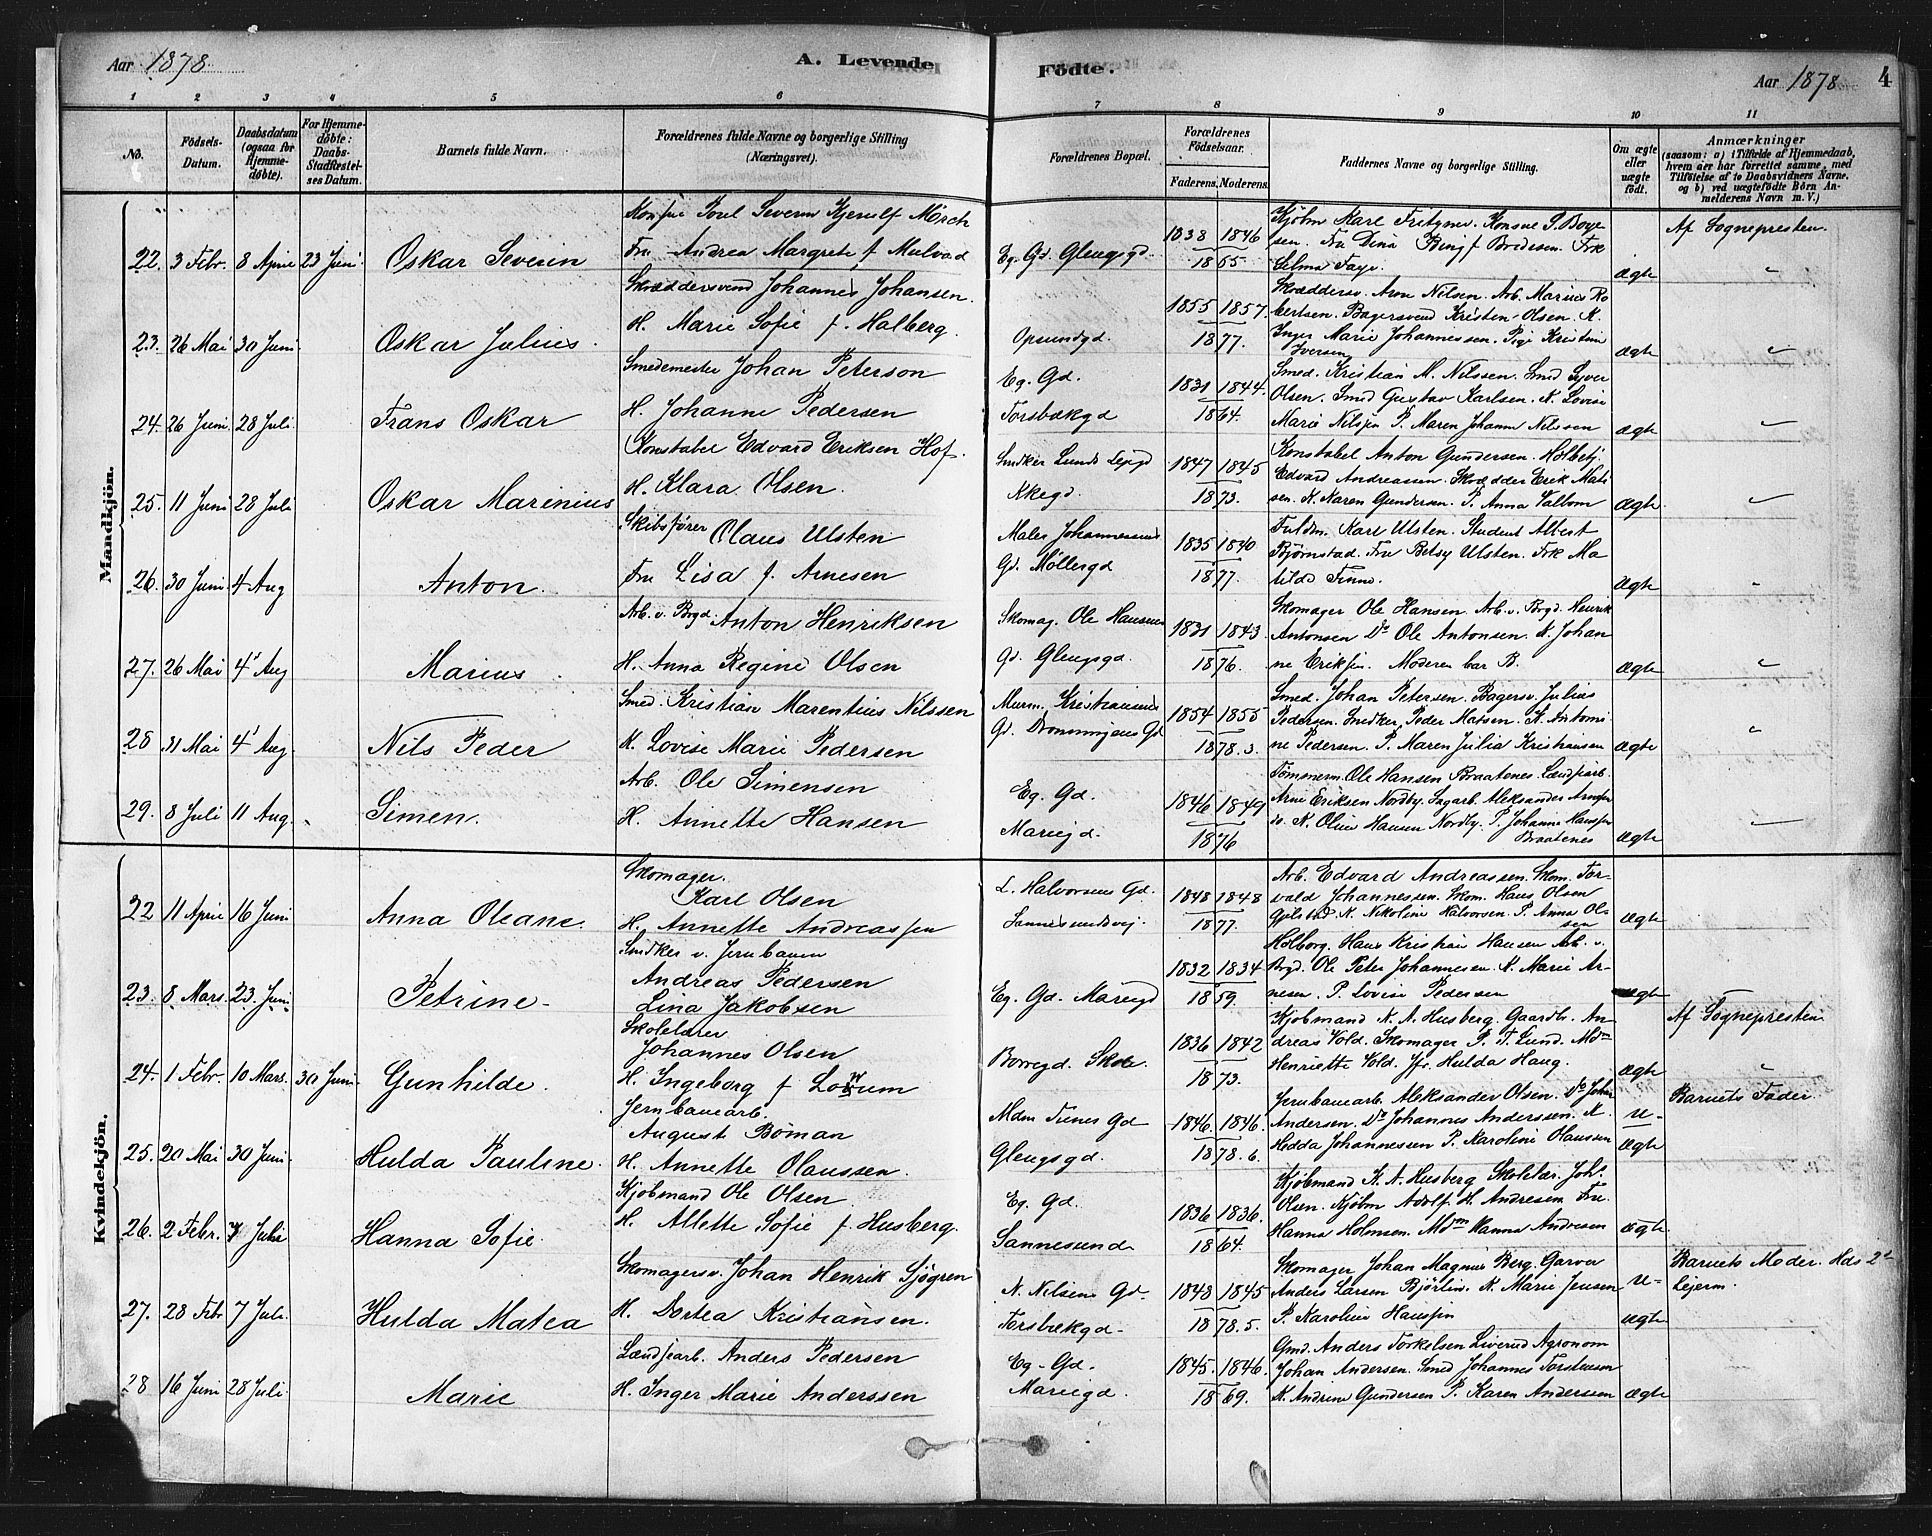 Aar 1878
A. Levende Födte.
Aar 1878
4
1 2 3 4 5 6 7 8 9 10 11
No.
Födsels-Datum.
Daabsdatum (ogsaa for Hjemmedøbte).
For Hjemmedøbte: Daabs-Stadfæstelses Datum.
Barnets fulde Navn.
Forældrenes fulde Navne og borgerlige Stilling (Næringsvei).
Forældrenes Bopæl.
Forældrenes Födselsaar.
Faderens. Moderens.
Faddernes Navne og borgerlige Stilling.
Om ægte eller uægte födt.
Anmærkninger
(saasom: a) i Tilfælde af Hjemmedaab, hvem der har forrettet samme, med Tilföielse af to Daabsvidners Navne. og b) ved uægtefödte Börn Anmelderens Navn m. V.)
Mandkjön.
22. 3 Febr. 8 April 23 Juni Oskar Severin
Konsul Poul Severin Kjerulf Mörch
Fru Andrea Margrete f. Mulvad
Eg. Gd. Glengsgd.
1838 1846
1865
Kjøbm Karl Fritzner. Konsul P. Boye
sen. Fru Dina Bing f Brodesen. Frk
Selma Faye.
Ægte
Af Sognepresten.
23. 26 Mai 30 Juni Oskar Julius.
Skræddersvend Johannes Johansen.
H. Marie Sofie f. Halberg.
Opsundgd.
1855 1857.
1877.
Skræddersv. Arne Nilsen. Arb. Marius Ro
bertsen. Bagersvend Kristen Olsen. K.
Inger Marie Johannessen. Pige Kristine
Iversen
Ægte
24. 26 Juni 28 Juli Frans Oskar
Smedemester Johan Peterson
H. Johanne Pedersen
Eg. Gd.
Torsbækgd
1831 1844.
1864.
Smed. Kristian M. Nilssen. Smed Syver
Olsen. Smed Gustav Karlsen. K. Lovise
Marie Nilsen P. Maren Johanne Nilssen
Ægte
25. 11 Juni 28 Juli Oskar Marinius
Konstabel Edvard Eriksen Hof.
H. Klara Olsen.
Snedker Lunds Leigd
Kkegd.
1847 1845
1873.
Konstabel Anton Gundersen.
Edvard Andreassen. Skrædder Erik Mati
sen. K. Karen Gundersen. P. Anna Valbom
Ægte
26. 30 Juni 4 Aug Anton.
Skibsfører Olaus Ulsten
Fru Lisa f. Arnesen
Maler Johannesens
Gd. Möllergd
1835 1840
1877.
Fuldm. Karl Ulsten. Student Albert
Björnstad. Fru Betsy Ulsten. Frk Ma
tilde Finne.
Ægte
27. 26 Mai 4 Aug Marius
Arb. v. Brgd. Anton Henriksen
H. Anna Regine Olsen
Skomag. Ole Hansens
Gd. Glengsgd.
1831 1843.
1876.
Skomager Ole Hansen. Arb. v. Brgd. Henrik
Antonsen Do Ole Antonsen. K. Johan
ne Eriksen. Moderen bar B.
Ægte
28 31 Mai 4 Aug. Nils Peder
Smed. Kristian Marentius Nilssen
K. Lovise Marie Pedersen
Murm. Kristiansens
Gd. Dronningens Gd
1854 1855
1878.3.
Smed. Johan Petersen. Bagersv. Julius
Pedersen. Snedker Peder Matsen. K. Antoni
ne Pedersen. P. Maren Julia Kristiansen
Ægte
29. 8 Juli 11 Aug. Simen.
Arb. Ole Simensen
H. Annette Hansen
Eg. Gd.
Mariegd.
1846 1849
1876
Tömmerm. Ole Hansen Braatenes. Landsearb.
Arne Eriksen Nordby. Sagarb. Aleksander
K. Oline Hansen Nordby. P. Johanne Hansen
Braatenes
Ægte
Kvindekjön.
22 11 April 16 Juni Anna Oleane.
Skomager.
Karl Olsen
H. Annette Andreassen
L. Halvorsens Gd.
Sannesundsvej.
1848 1848
1877.
Arb. Edvard Andreassen. Skom. Tor-
vald Johannessen. Skom. Hans Olsen
K. Nikoline Halvorsen. P. Anna Ol-
sen
Ægte
23. 8 Mars. 23. Juni Petrine
Snedker v. Jernbanen
Andreas Pedersen
Lina Jakobsen
Eg. Gd. Mariegd
1832 1834
1859.
Hans Kristian Hansen Arb. v.
Brgd. Ole Peter Johannesen. K. Marie Ar-
nesen. P. Lovise Pedersen
ægte
24. 1 Febr. 10 Mars. 30 Juni Gunhilde.
Skolelærer
Johannes Olsen
H. Ingeborg f
Borregd. Skole.
1836 1842
1873.
Kjöbmand K. A. Husberg. Gaardbr. An-
dreas Vold. Skomager P. T. Lund. Mdm
Henriette Vold. Jfr. Hulda Haug.
Ægte
Af Sognepresten
25. 20 Mai 30 Juni. Hulda Pauline.
Jernbanearb.
August Böman
H. Annette Olaussen.
Mdm Tunes Gd
Glengsgd.
1846. 1846.
1878.6.
Jernbanearb. Aleksander Olsen. Do Johan
Andersen. Do Johannes Anderssen. K.
Hedda Johannessen P. Karoline Olaussen
u-
Ægte
Barnets Fader
26. 2 Febr. 7 Juli Hanna Sofie.
Kjöbmand Ole Olsen
H. Allette Sofie f. Husberg.
Eg. Gd.
Sannesund
1836 1836.
1864.
Kjöbmand K. A. Husberg Skolelær. Joh.
Olsen. Kjöbm Adolf H. Andresen Fru
Hanna Holmsen. Mdm Hanna Andresen
ægte
27. 28 Febr 7 Juli. Hulda Matea
Skomagersv. Johan Henrik Sjögren
H. Dortea Kristiansen.
N. Nilsens Gd.
Torsbækgd.
1843 1845
1878.5.
Skomager Johan Magnus Berg. Garver
Anders Larsen Björlin. K. Marie Jensen
P. Karoline Hansen
u-
ægte
Barnets Moder. Hds 2d
Leierm.
28 16 Juni 28 Juli. Marie
Landsearb. Anders Pedersen
H. Inger Marie Anderssen
Eg. Gd.
Mariegd.
1845 1846.
1869.
Gmd. Anders Torkelsen Liverud Agronom
Johan Andersen. Smed Johannes Torstensen
K. Andrine Gundersen P. Karen Andersen
Ægte